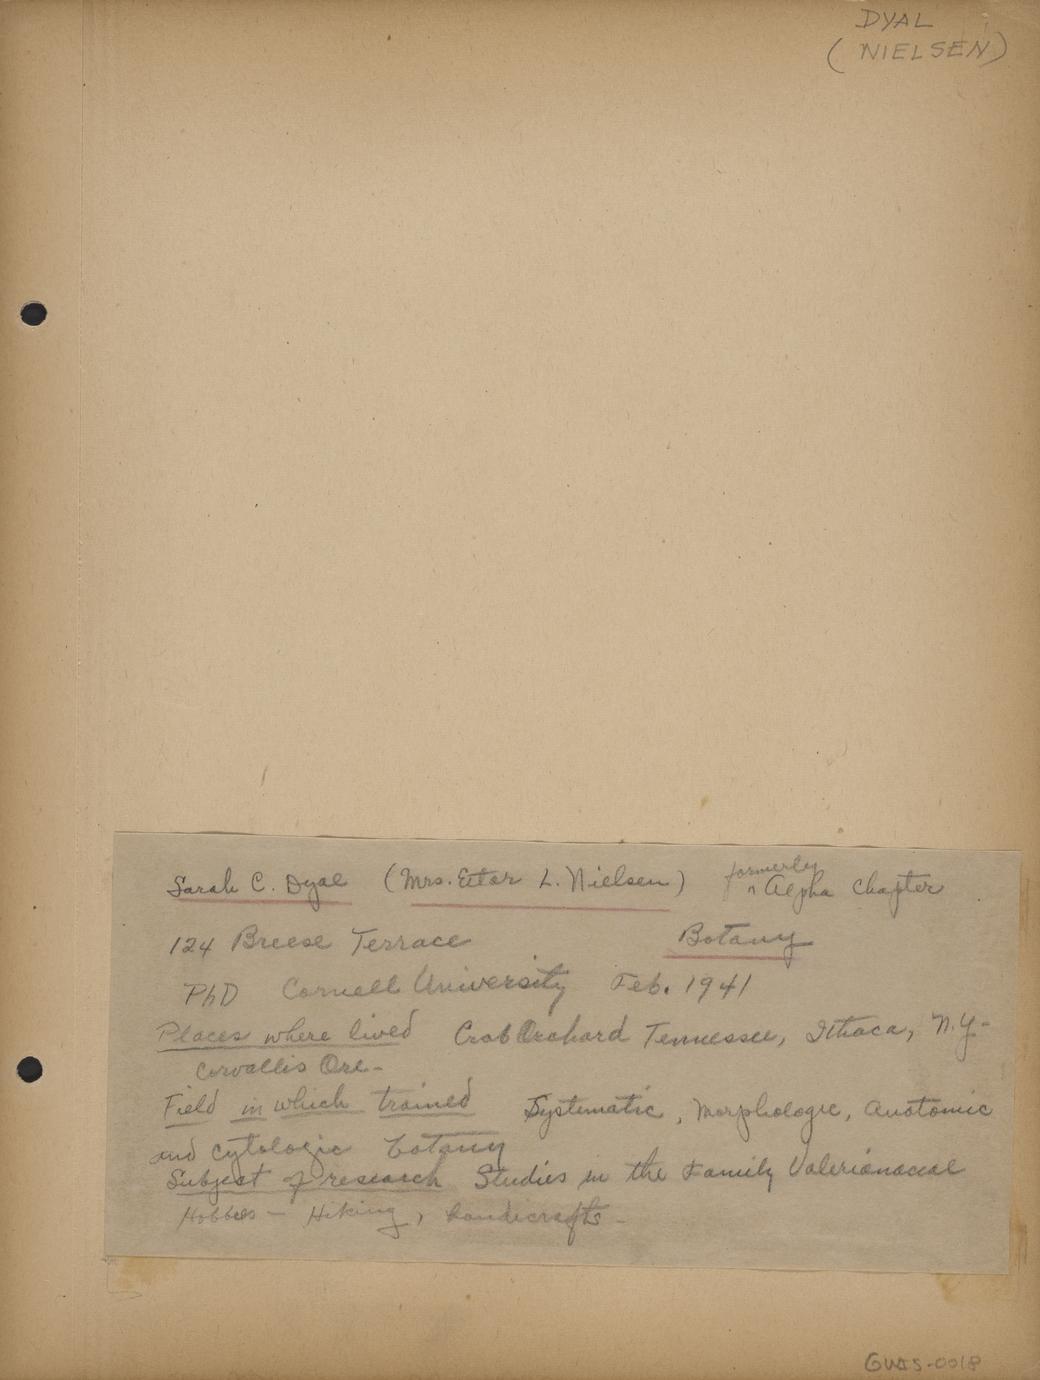 DYAL
(NIELSEN)
Sarah C. Dyal (Mrs. Etlar L. Nielsen) formerly
^ Alpha Chapter
124 Breese Terrace Botany
PhD Cornell University Feb. 1941
Places where lived Crab Orchard Tennessee, Ithaca, N.Y-
Corvallis Ore-
Field in which trained Systematic, Morphologic, Anatomic
and Cytologic botany
Subject of research Studies in the Family Valerianaceae
Hobbies - Hiking, handicrafts -
GWIS-0018